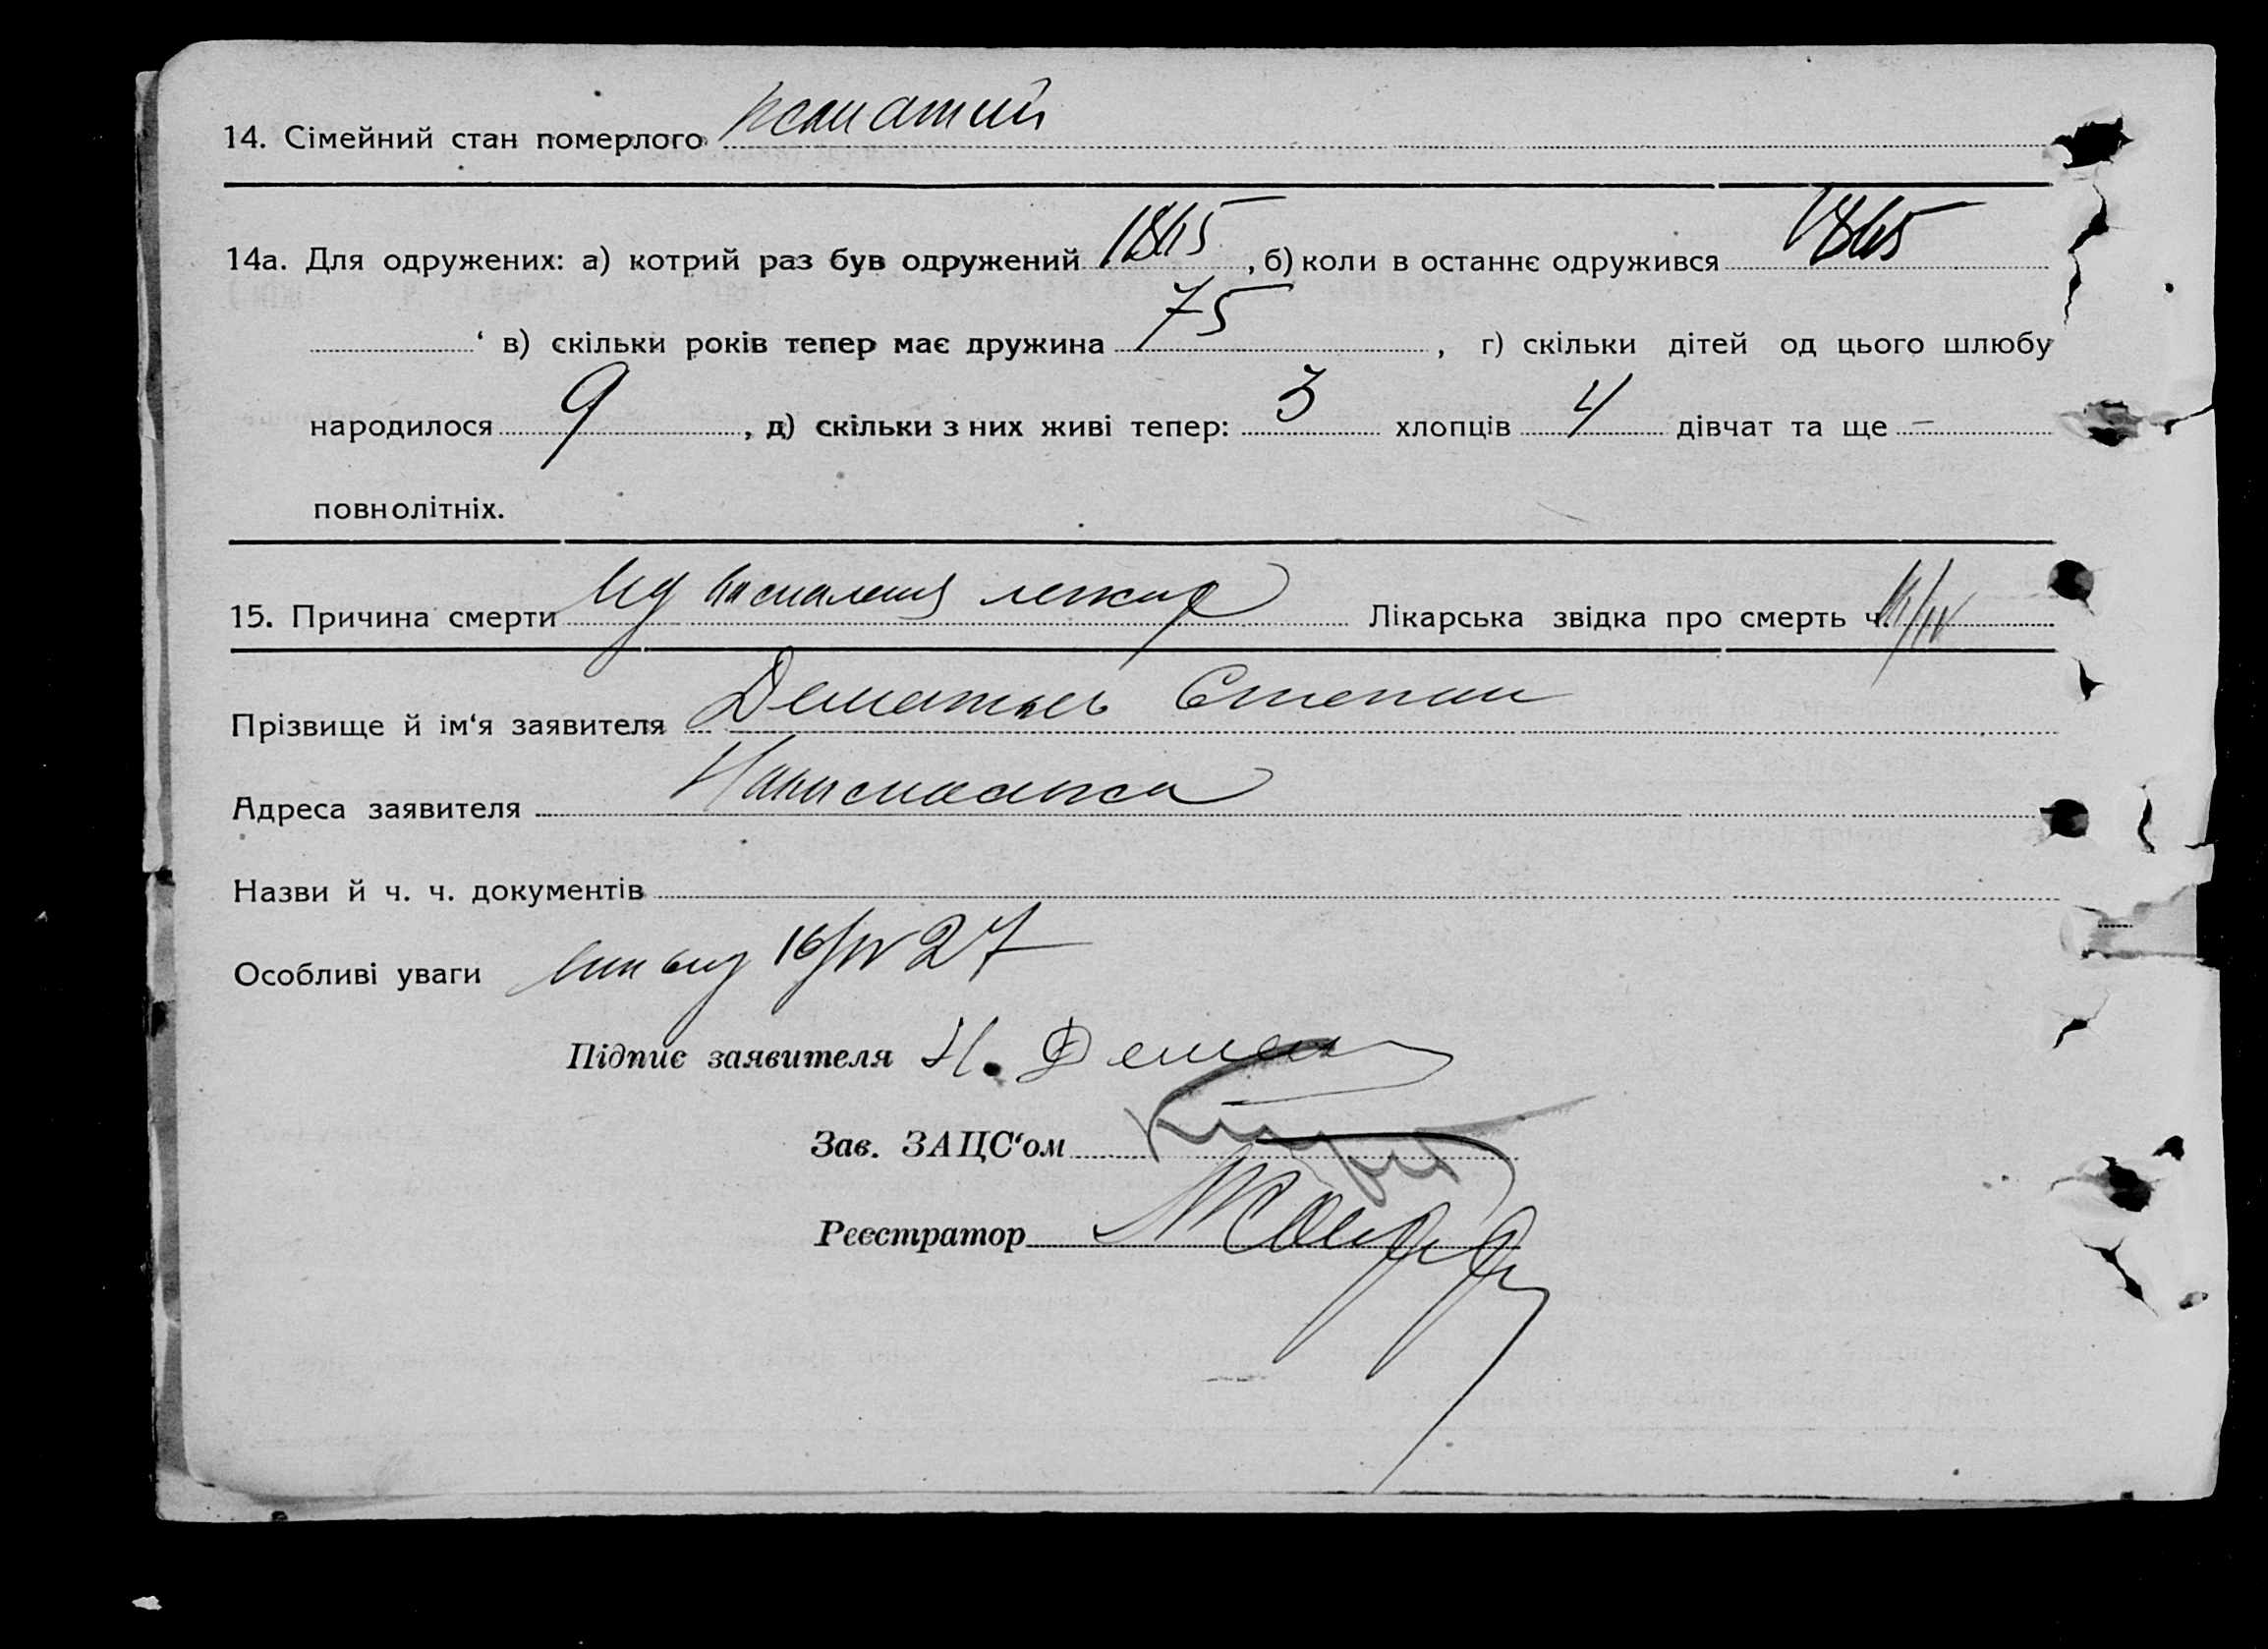 14. Сімейний стан померлого жонатий
14а. Для одружених: а) котрий раз був одружений 1865, б) коли в останнє одружився 1865
‘ в) скільки років тепер має дружина 75, г) скільки дітей од цього шлюбу
народилося 9, д) скільки з них живі тепер: 3 хлопців 4 дівчат та ще –
повнолітніх.
15. Причина смерти від воспаления легких Лікарська звідка про смерть ч.
Прізвище й ім‘я заявителя Степан
Адреса заявителя
Назви й ч. ч. документів
Особливі уваги 16/IV 27
Підпис заявителя
Зав. ЗАЦС‘ом
Реєстратор